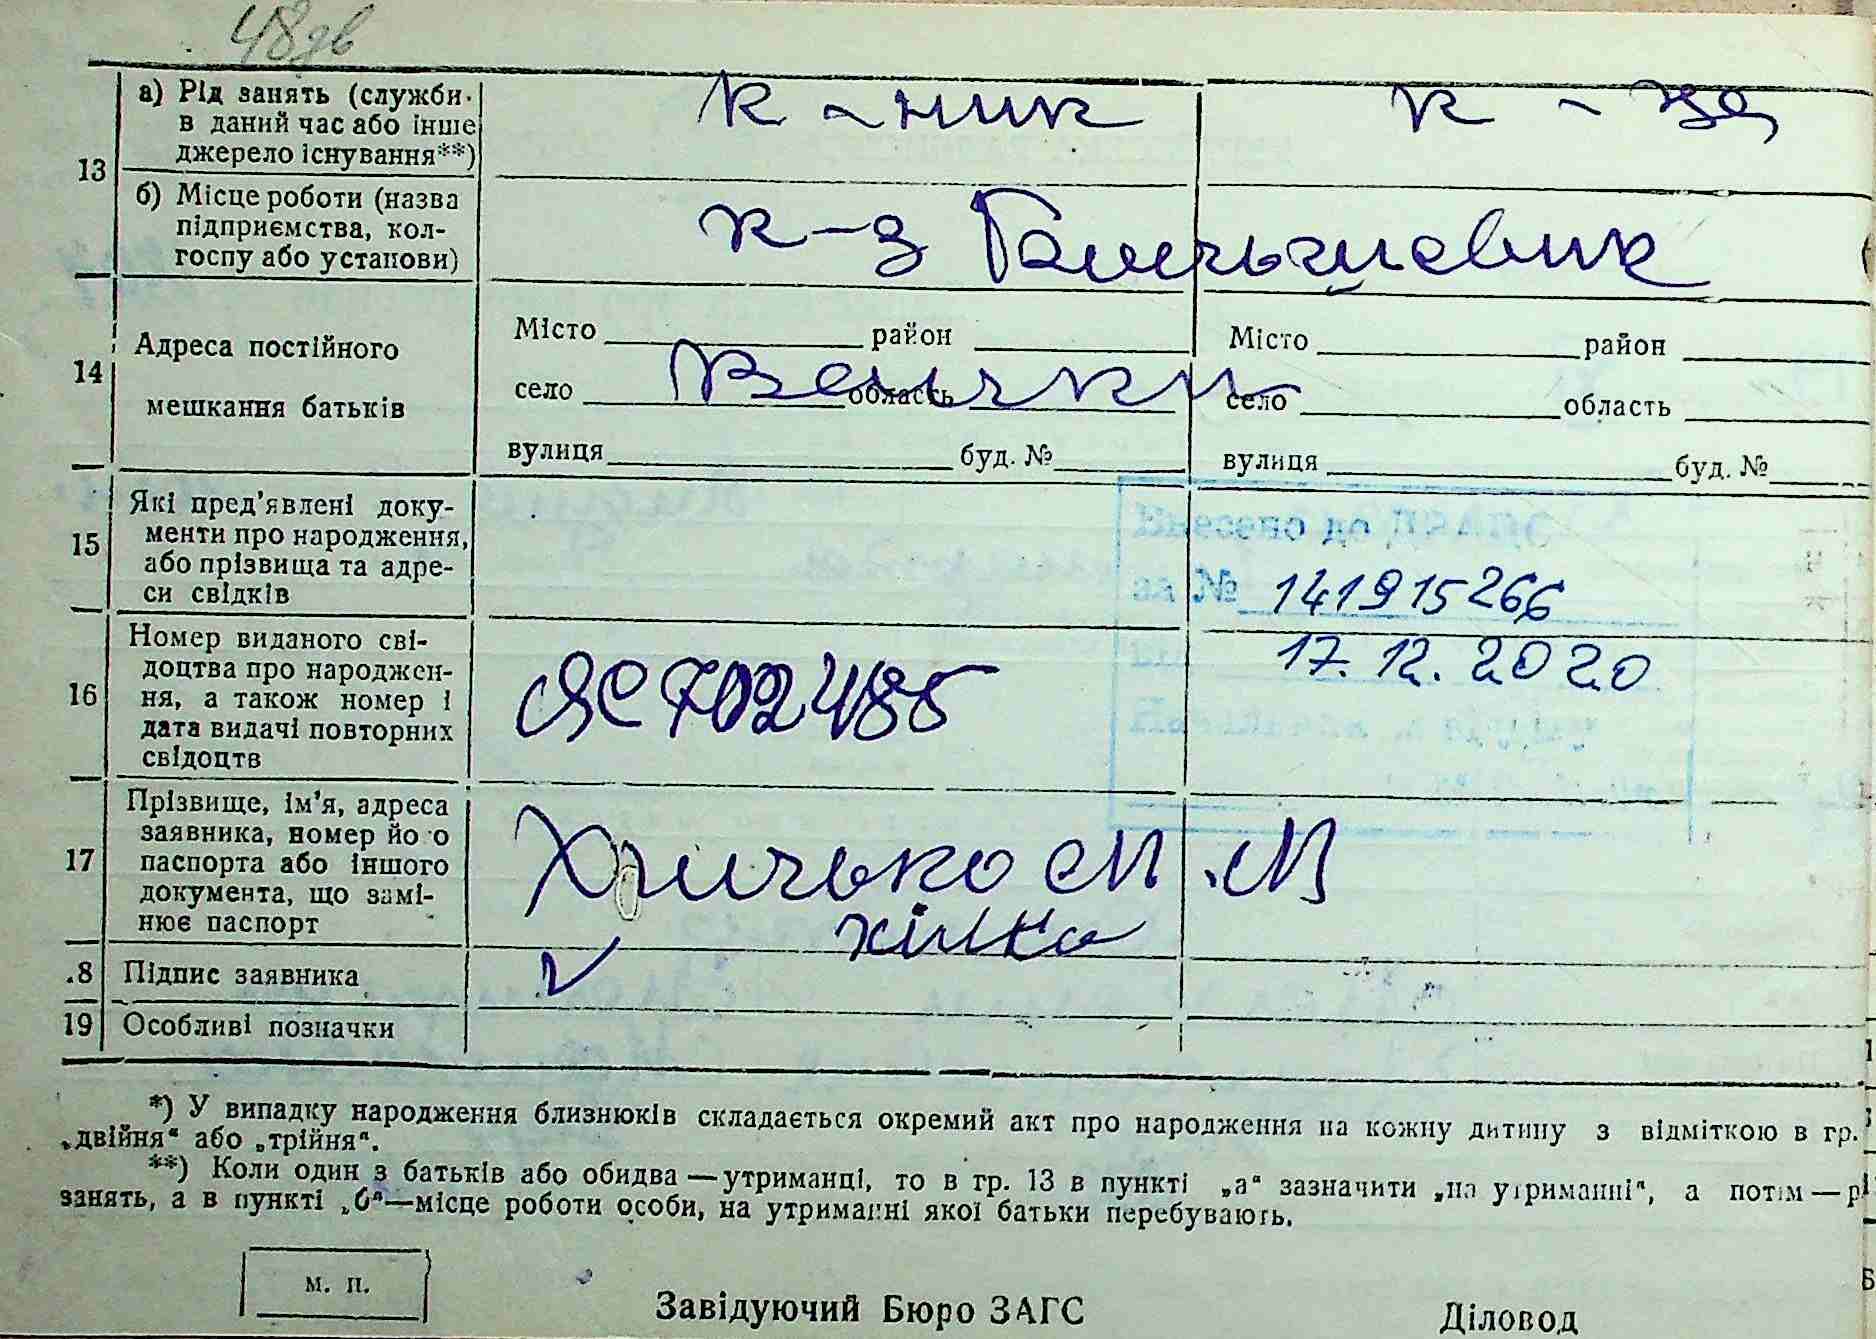 48 зв
а) Рід занять (служби
в даний час або інше
джерело існування**)
к-ник к-ця
13
б) Місце роботи (назва
підприємства, кол-
госпу або установи)
к-з Большевик
14
Адреса постійного
мешкання батьків
Місто район Місто район
село область село область
вулиця буд. № вулиця буд. №
15
Які пред'явлені доку-
менти про народження,
або прізвища та адре-
си свідків
Внесено до ДРАЦС
за № 141915266
17.12.2020
16
Номер виданого сві-
доцтва про народжен-
ня, а також номер і
дата видачі повторних
свідоцтв
ЯС 702485
17
Прізвище, ім'я, адреса
заявника, номер йо о
паспорта або іншого
документа, що замі-
нює паспорт
М. М
.8 Підпис заявника
19 Особливі позначки
*) У випадку народження близнюків складається окремий акт про народження на кожну дитину з відміткою в гр.
„двійня“ або „трійня“.
**) Коли один з батьків або обидва — утриманці, то в гр. 13 в пункті „а“ зазначити „на утриманні“, а потім — р
занять, а в пункті „б“—місце роботи особи, на утриманні якої батьки перебувають.
м. п.
Завідуючий Бюро ЗАГС Діловод